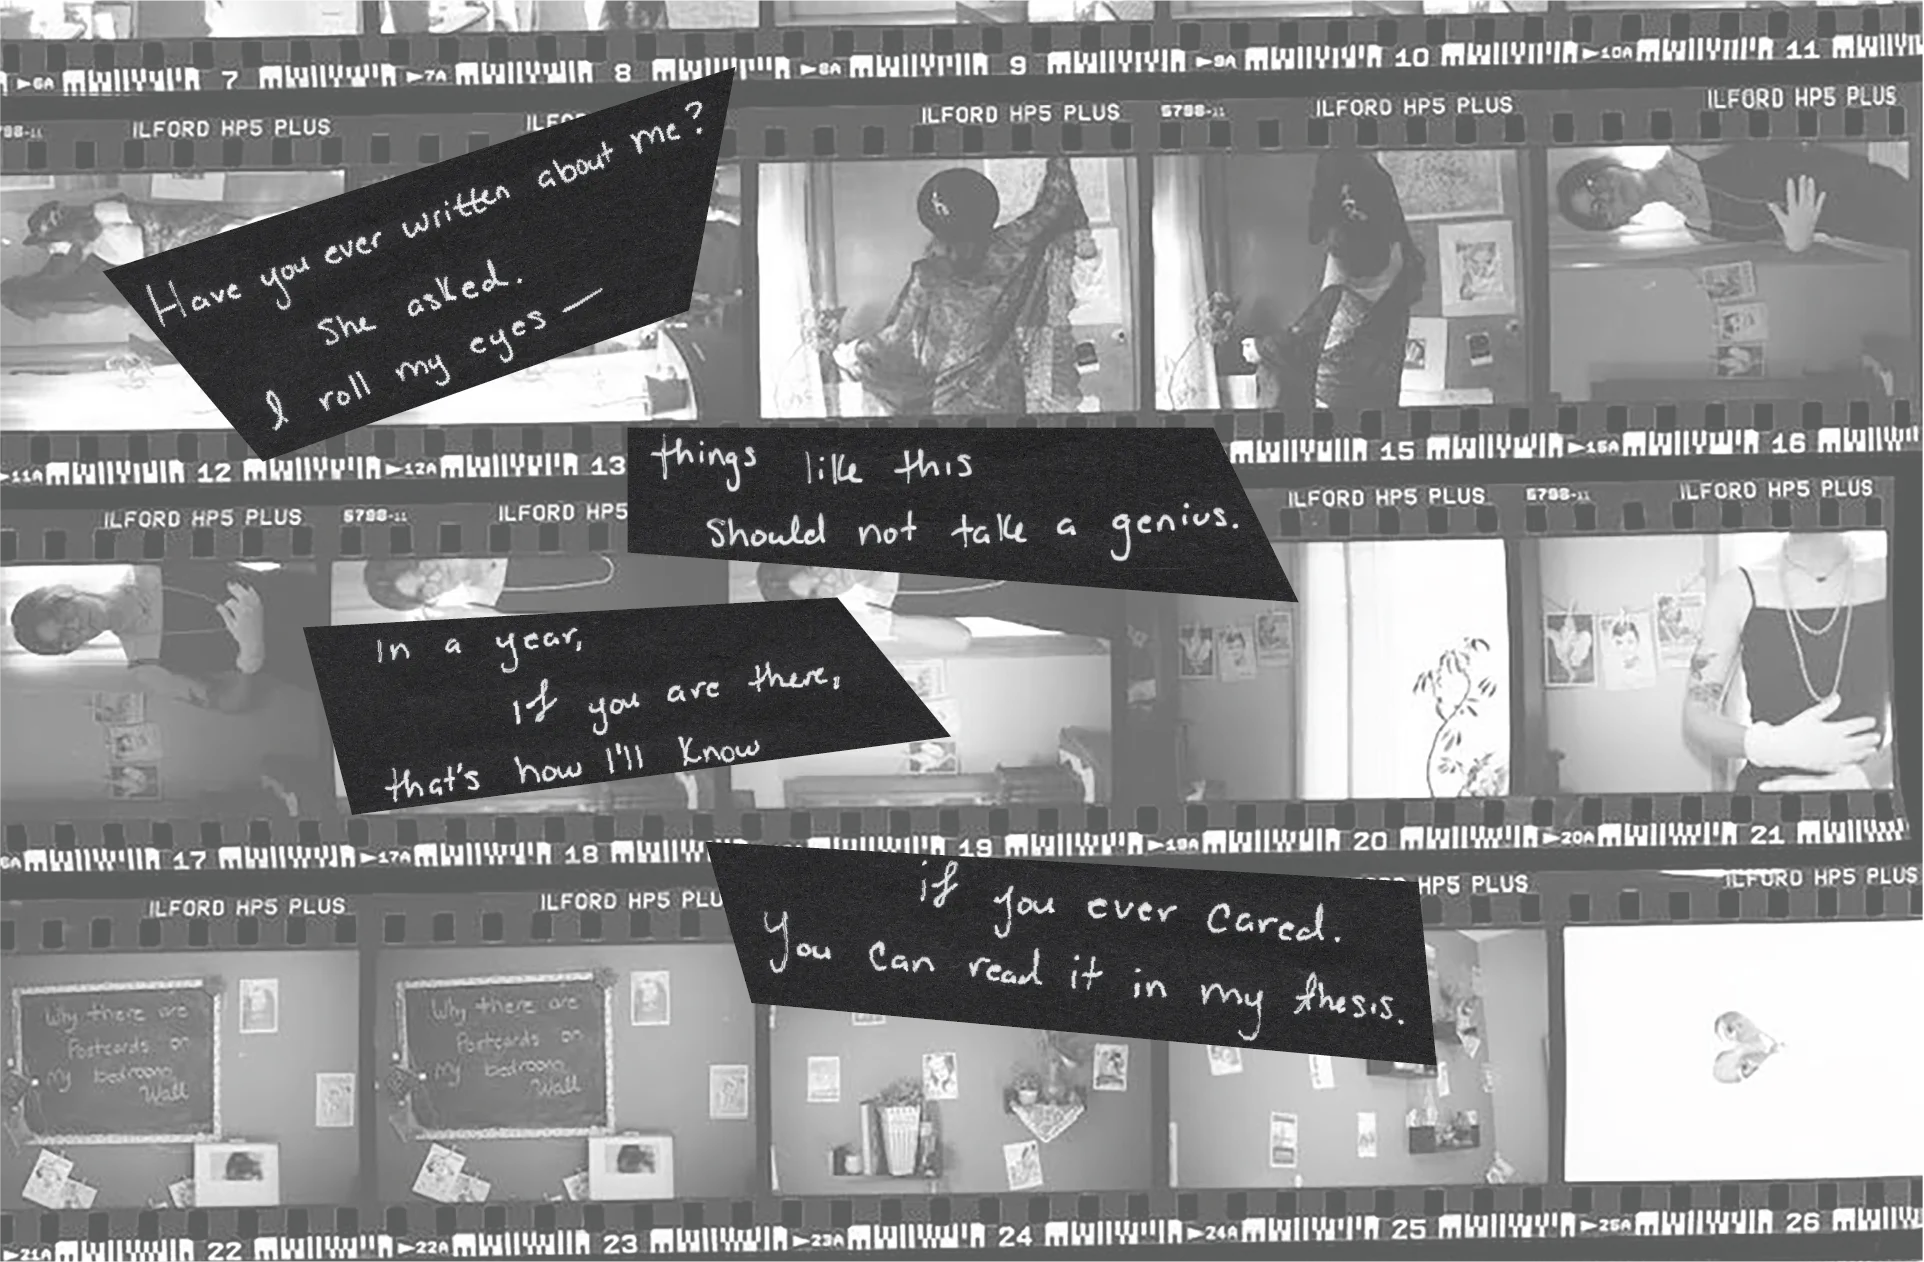 6A 7 7A 8 8A 9 9A 10 10A 11
5798-11 ILFORD HP5 PLUS ILFORD HP5 PLUS 5798-11 ILFORD HP5 PLUS ILFORD HP5 PLUS
Have you ever written about me?
She asked.
I roll my eyes —
11A 12 12A 13 15 15A 16
things like this
should not take a genius.
ILFORD HP5 PLUS 5798-11 ILFORD HP5 ILFORD HP5 PLUS 5798-11 ILFORD HP5 PLUS
In a year,
if you are there,
that's how I'll know
17 17A 18 19 19A 20 20A 21
if you ever cared.
You can read it in my thesis.
ILFORD HP5 PLUS ILFORD HP5 PLU HP5 PLUS ILFORD HP5 PLUS
Why there are
Postcards on
My bedroom
Wall
Why there are
Postcards on
My bedroom
Wall
21A 22 22A 23 23A 24 24A 25 25A 26